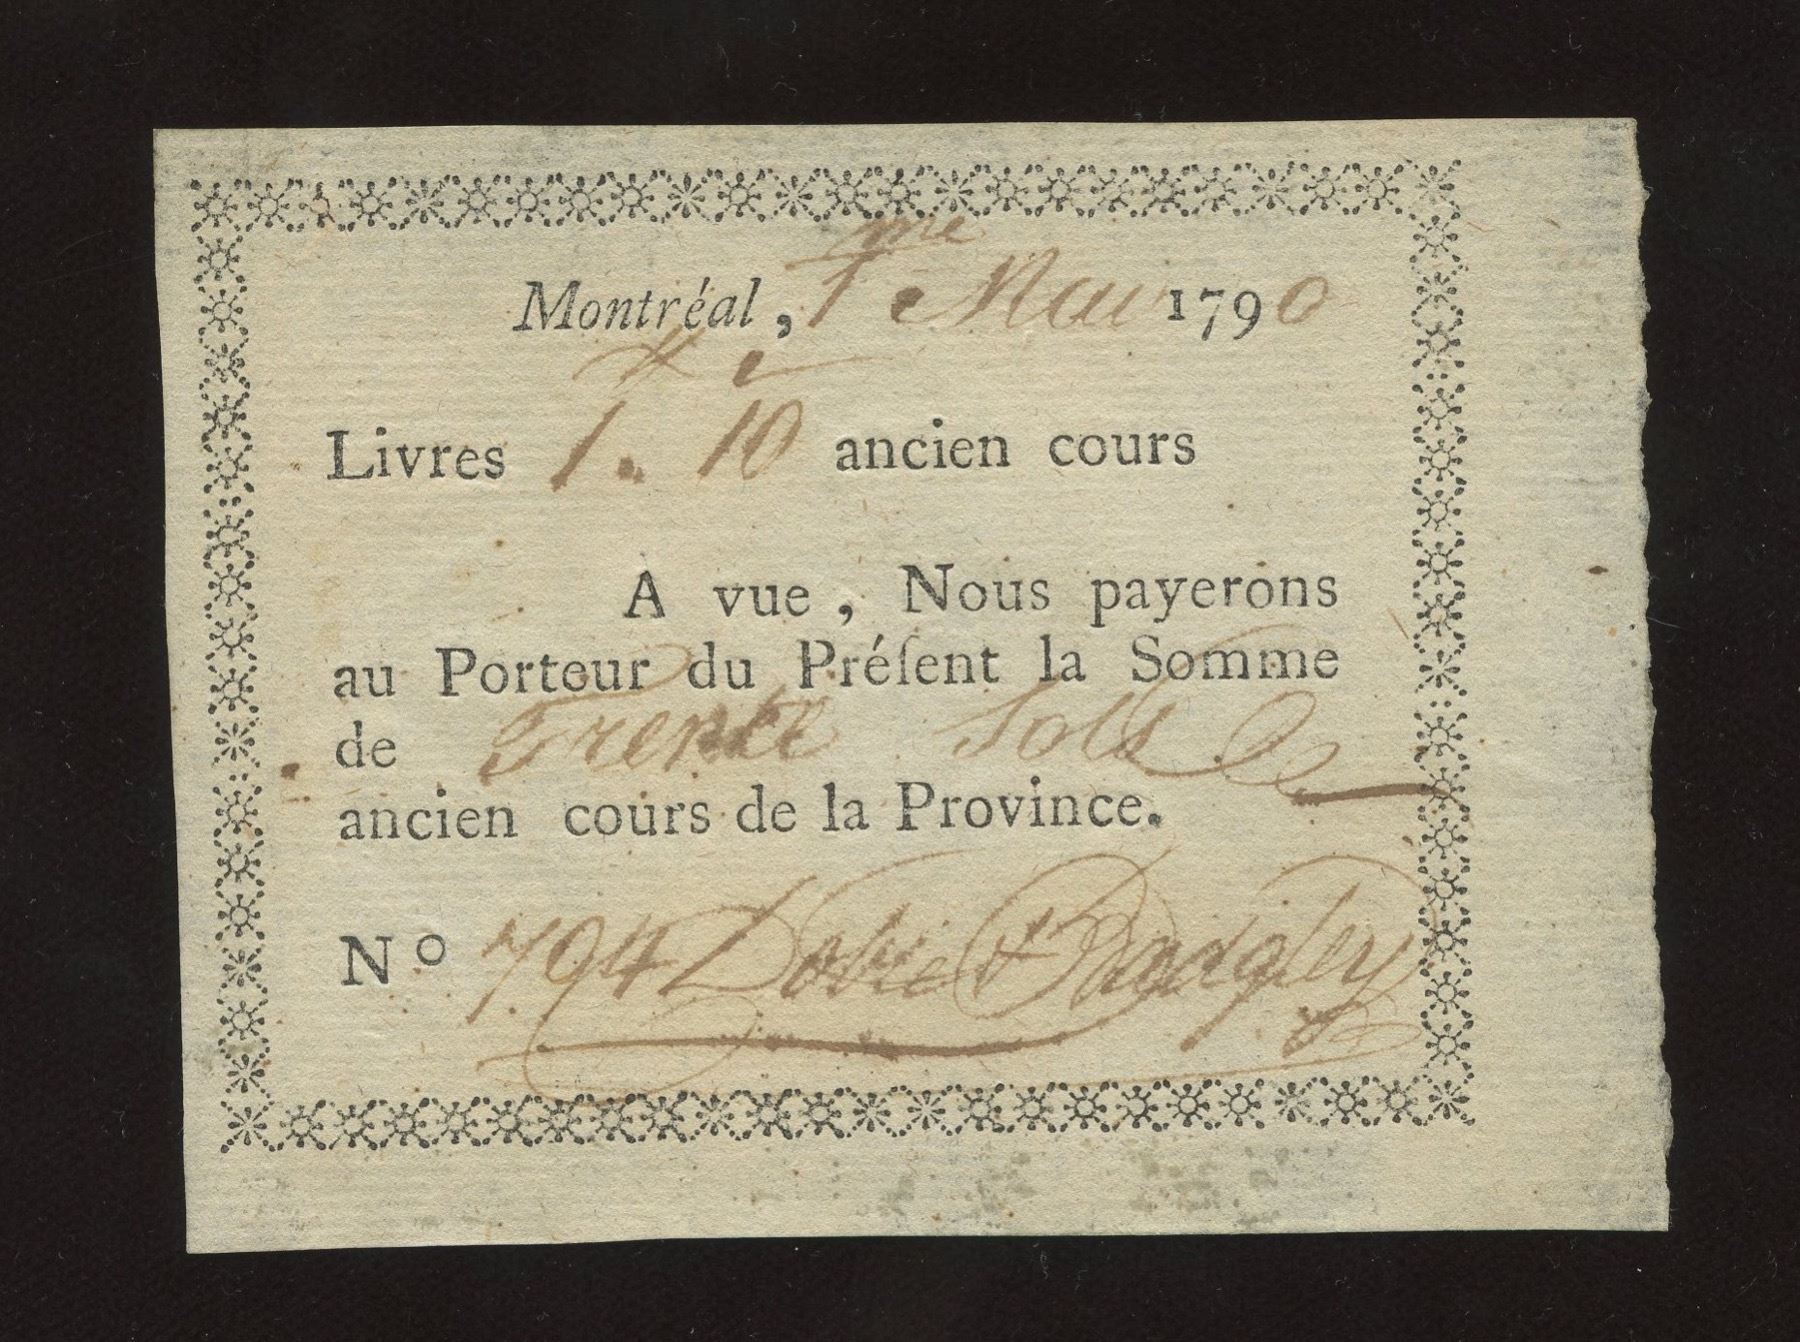 Montréal, 1me Mai 1790
Livres 1. 10 ancien cours
A vue, Nous payerons
au Porteur du Préſent la Somme
de Trente Sols
ancien cours de la Province.
No 794 Dobie & Badgley